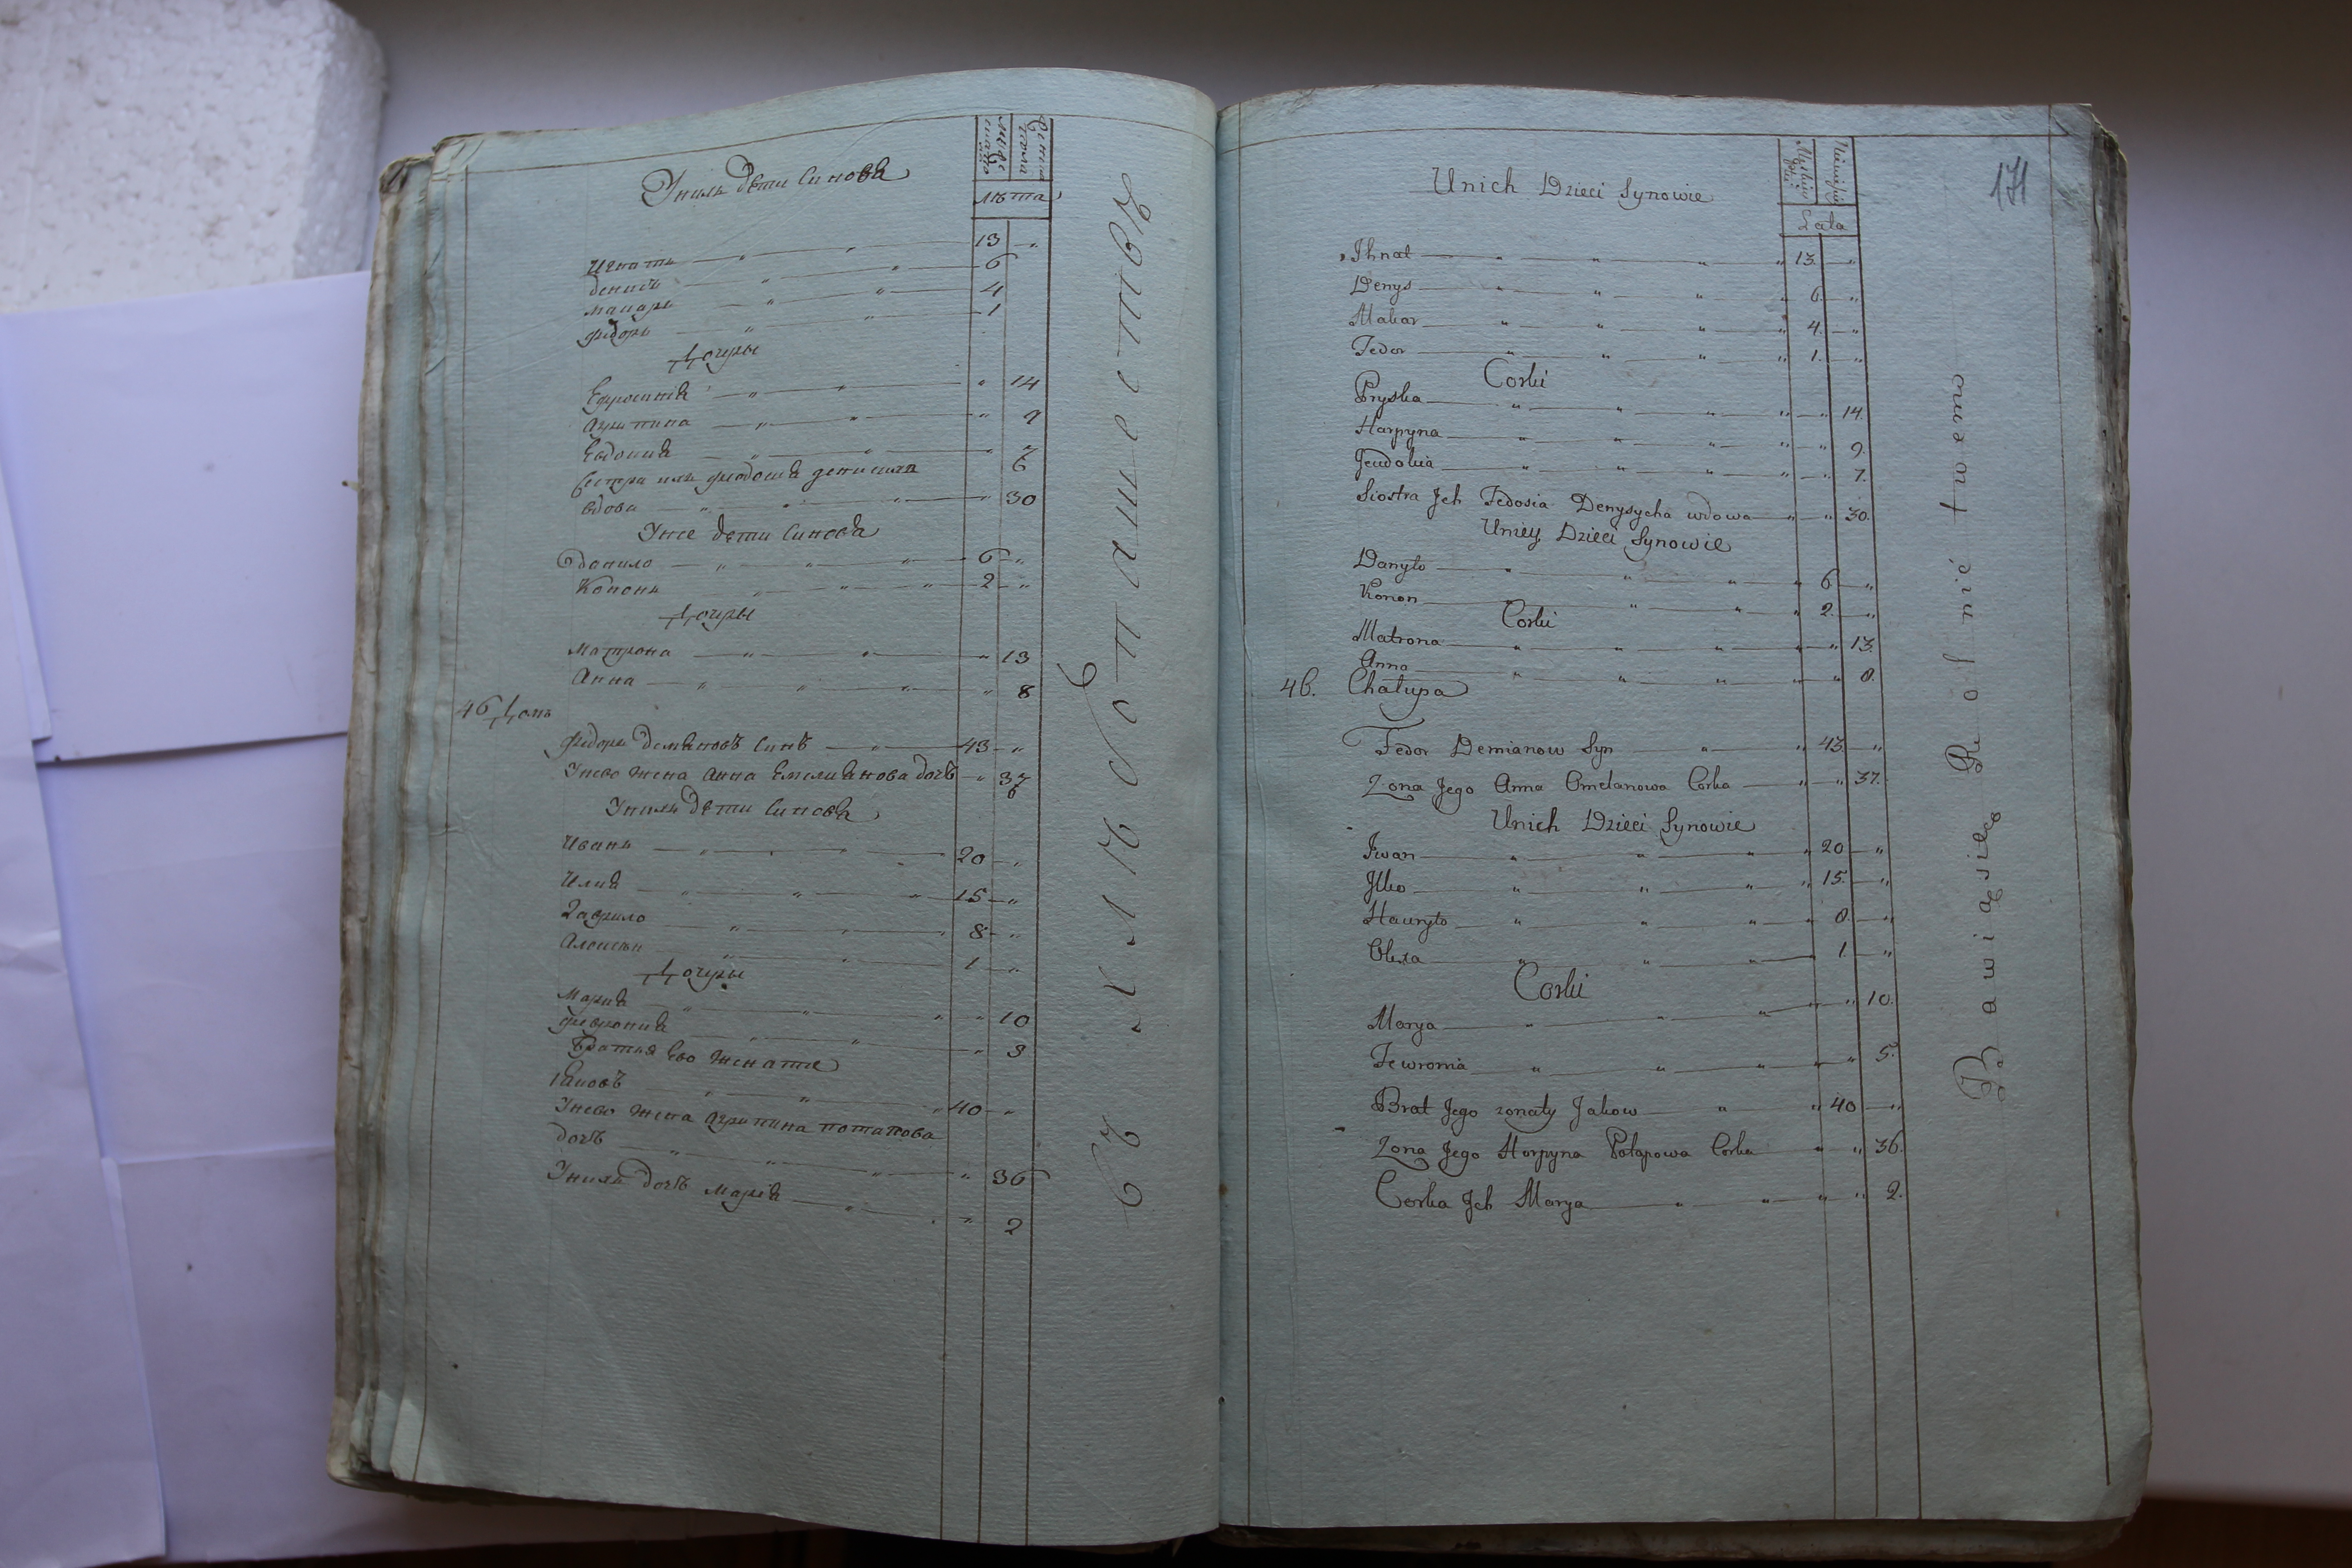 Унихъ дѣти Синовя
мужеска
женска пола
лѣта
Игнатъ 13
денисъ 6
макаръ 4
Федоръ 1
Дочеры
Ефросинія 14
Агрипина 9
Евдокия 7
Сестра ихъ Феодосия денисиха
вдова 30
Унее дети Синовя
данило 6
Кононъ 2
Дочеры
Матрона 13
Анна 8
46 Домъ
Федоръ демяновъ Синъ 43
Унево жена Анна Емелиянова дочъ 37
Унихъ дѣти Синовя
Иванъ 20
Илия 15
Гаврило 8
Алексѣи 1
Дочеры
Мария 10
Феврония 3
Братъя Ево женатые
Яковъ 40
Унево жена Агрипина потапова
дочъ 36
Унихъ дочъ Марія 2
въ хлѣбопашествѣ
171
Unich Dzieci Synowie
Lata
Ihnat 13.
Denys 6.
Makar 4.
Fedor 1.
Corki
Pryska 14.
Harpyna 9.
Jeudokia 7.
Siostra Jch Fedosia Denysycha wdowa 30.
Uniey Dzieci Synowie
Danyło 6.
Konon 2.
Corki
Matrona 13.
Anna 8.
46. Chałupa
Fedor Demianow Syn 43.
Zona Jego Anna Omelanowa Corka 37.
Unich Dzieci Synowie
Jwan 20
Jlko 15.
Hawryło 8.
Olexa 1
Corki
Marya 10.
Fewronia 5.
Brat Jego zonaty Jakow 40
Zona Jego Horpyna Potapowa Corka 36.
Corka Jch Marya 2.
Bawią się Rolnictwem